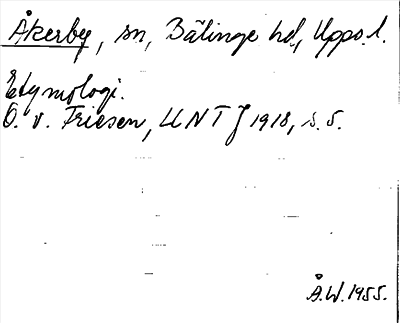 Åkerby, sn, Bälinge hd, Upps. l.
Etymologi.
O. v. Friesen, UNT J 1918, s. 5.
Å.W. 1955.